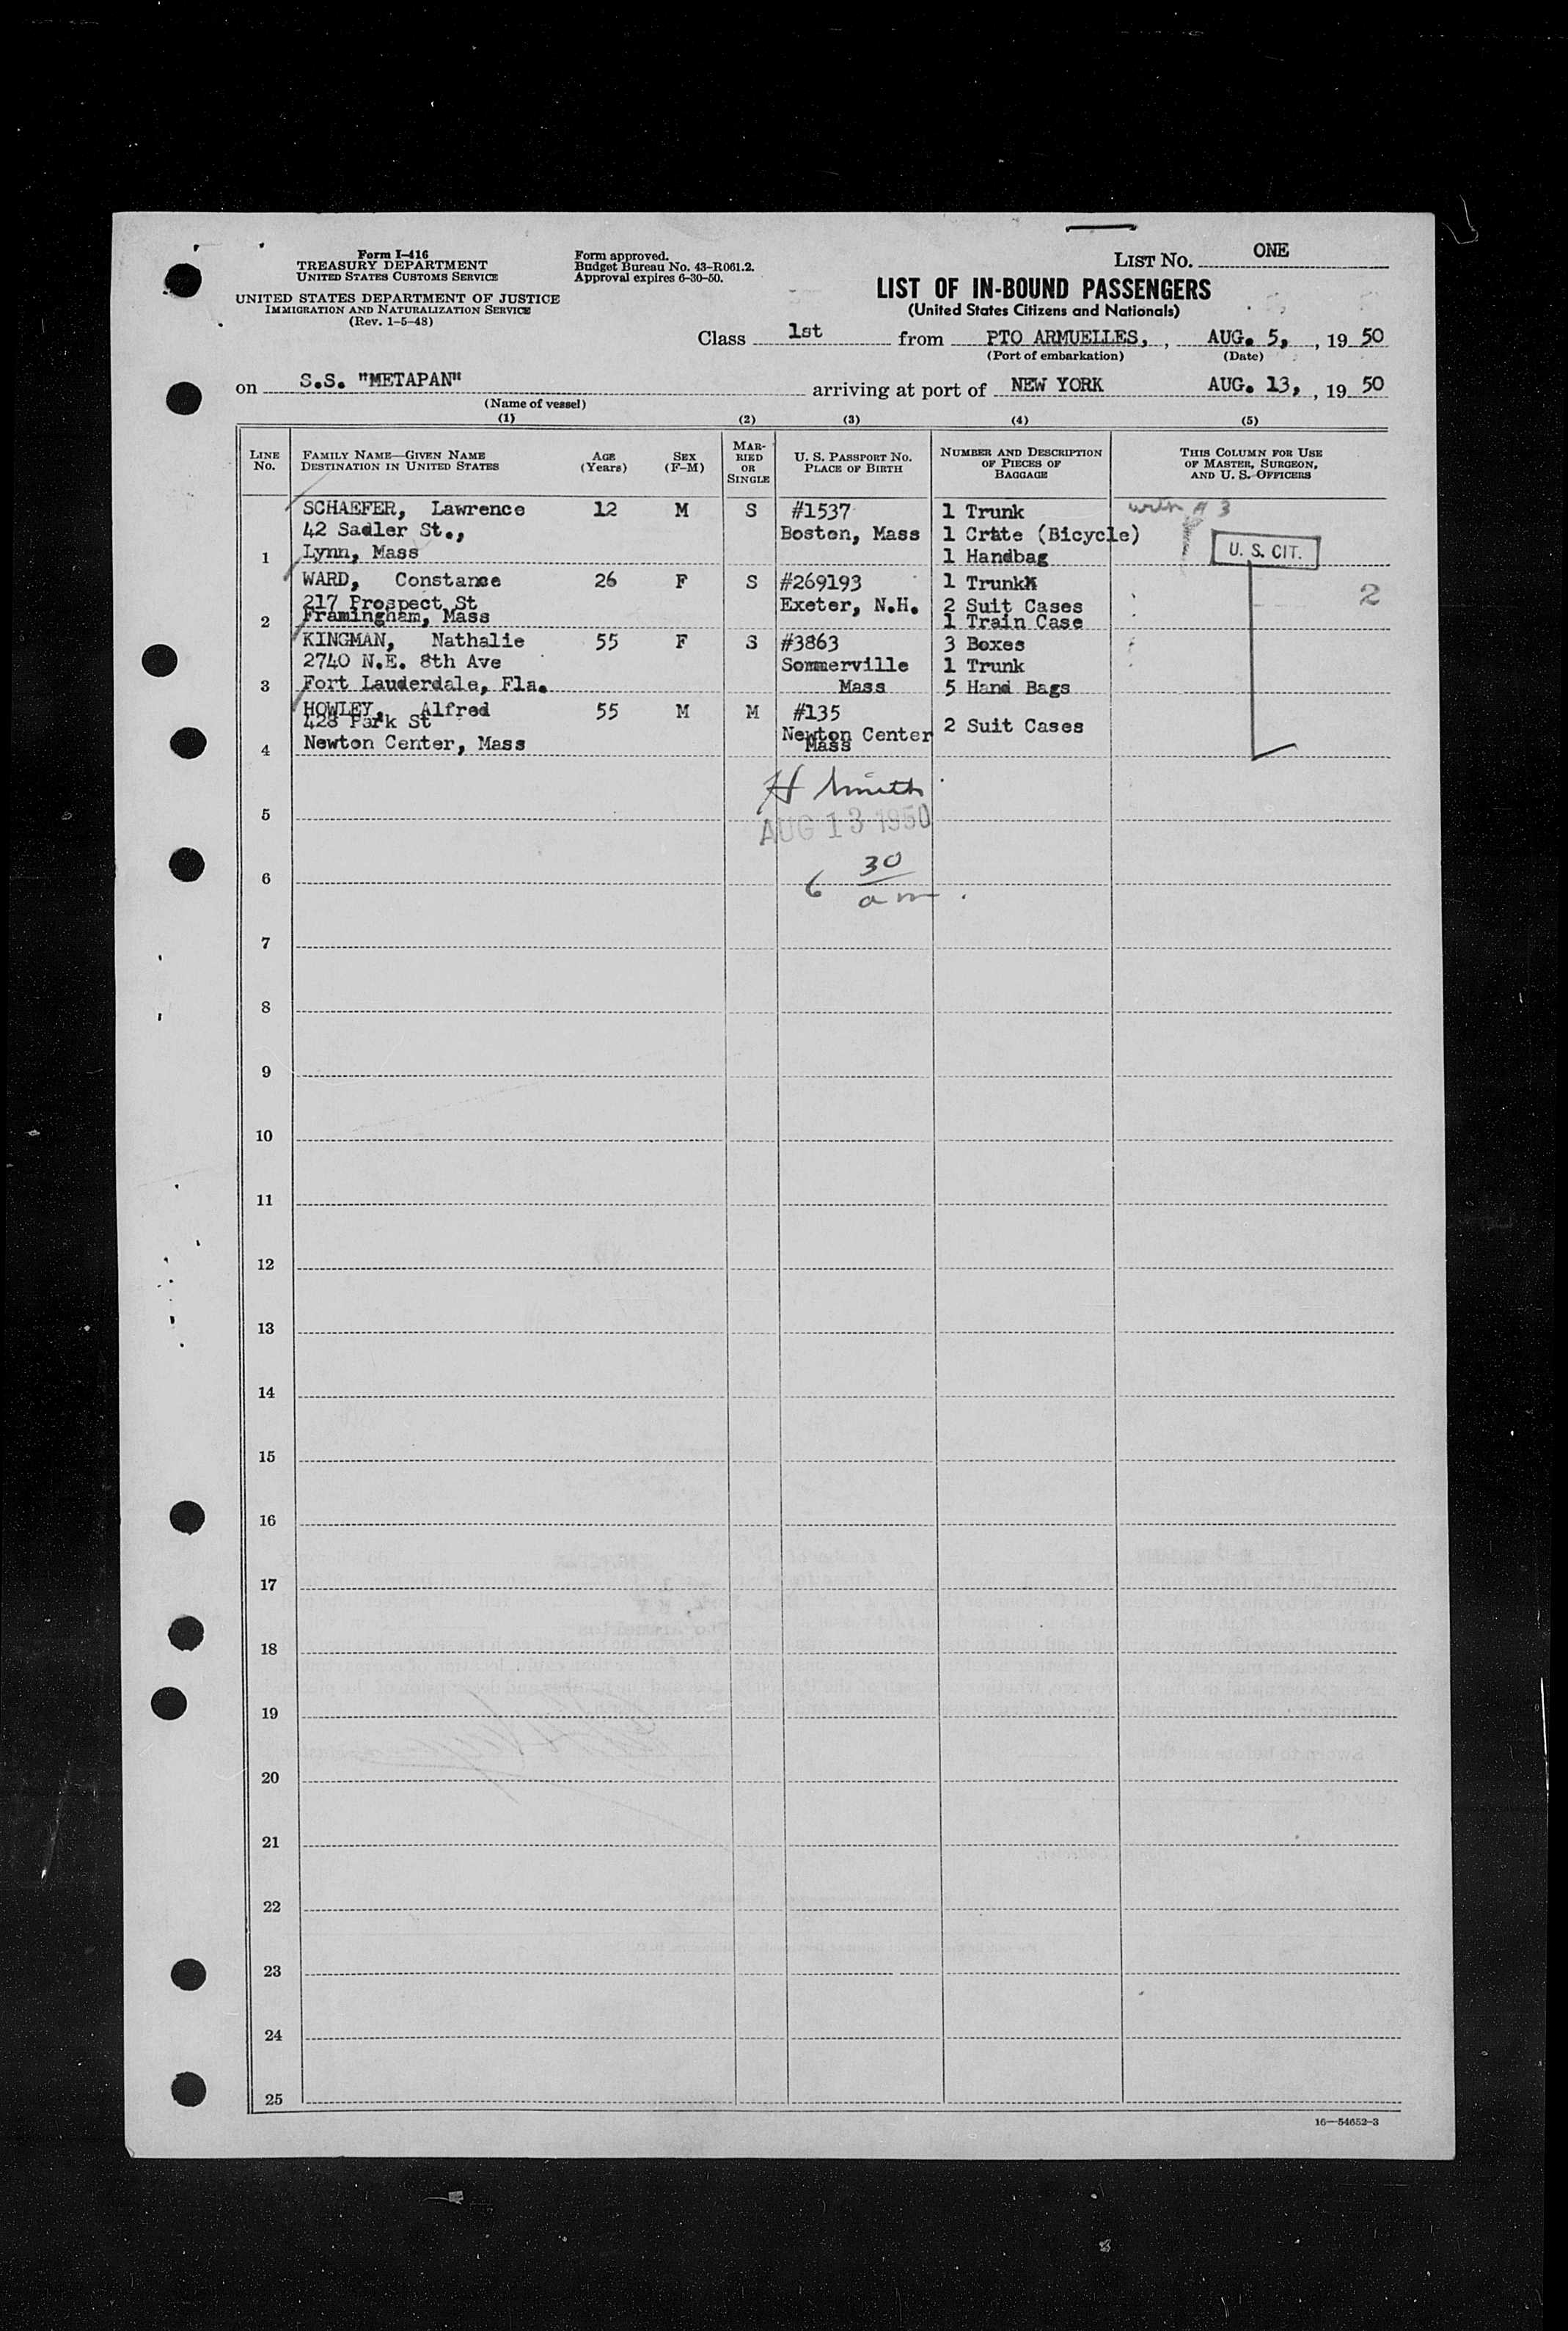 Form I-416
TREASURY DEPARTMENT
UNITED STATES CUSTOMS SERVICE
UNITED STATES DEPARTMENT OF JUSTICE
IMMIGRATION AND NATURALIZATION SERVICE
(Rev. 1-5-48)
Form approved.
Budget Bureau No. 43-R061.2.
Approval expires 6-30-50.
LIST NO. ONE
LIST OF IN-BOUND PASSENGERS
(United States Citizens and Nationals)
Class 1st from PTO ARMUELLES, , AUG. 5, , 19 50
(Port of embarkation) (Date)
on S.S. "METAPAN" arriving at port of NEW YORK AUG. 13, , 19 50
(Name of vessel)
(1) (2) (3) (4) (5)
LINE NO. FAMILY NAME—GIVEN NAME DESTINATION IN UNITED STATES AGE (Years) SEX (F-M) MARRIED OR SINGLE U. S. PASSPORT NO. PLACE OF BIRTH NUMBER AND DESCRIPTION OF PIECES OF BAGGAGE THIS COLUMN FOR USE OF MASTER, SURGEON, AND U. S. OFFICERS
SCHAEFER, Lawrence 12 M S #1537 1 Trunk
42 Sadler St., Boston, Mass 1 Crate (Bicycle)
1 Lynn, Mass 1 Handbag U. S. CIT.
WARD, Constance 26 F S #269193 1 Trunk
217 Prospect St Exeter, N.H. 2 Suit Cases 2
2 Framingham, Mass 1 Train Case
KINGMAN, Nathalie 55 F S #3863 3 Boxes
2740 N.E. 8th Ave Sommerville 1 Trunk
3 Fort Lauderdale, Fla. Mass 5 Hand Bags
HOWLEY, Alfred 55 M M #135
428 Park St Newton Center 2 Suit Cases
4 Newton Center, Mass Mass
H Smith
5 AUG 13 1950
6 6 30 am.
7
8
9
10
11
12
13
14
15
16
17
18
19
20
21
22
23
24
25
16—54652-3